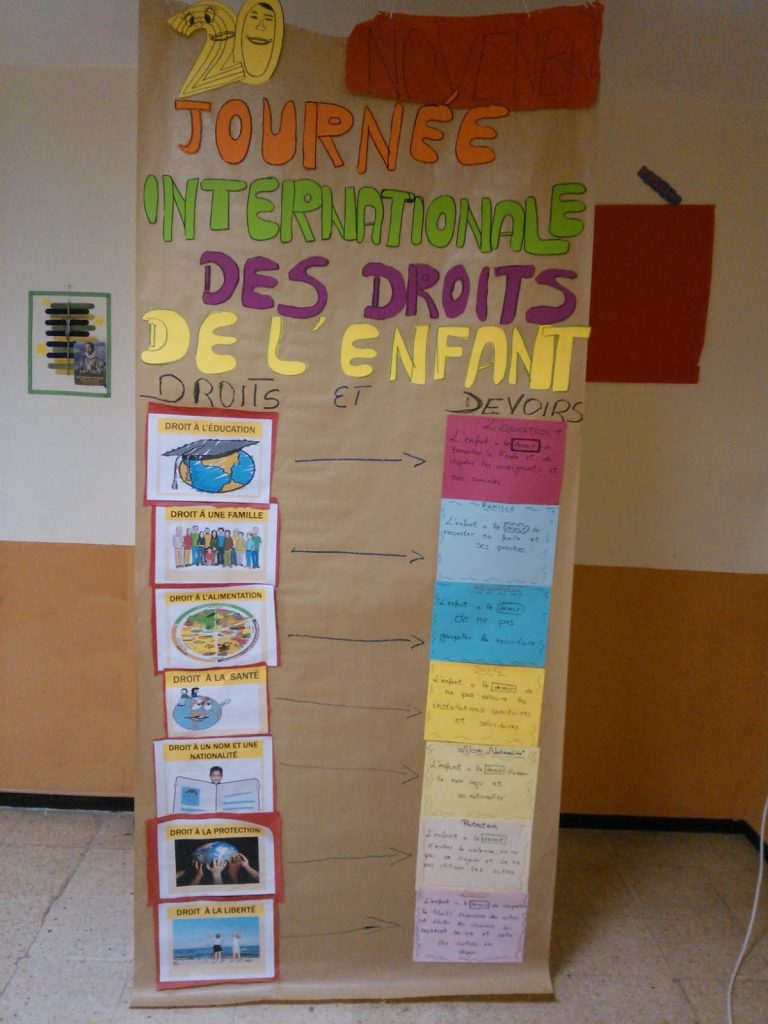 20 NOVEMBRE
JOURNÉE
INTERNATIONALE
DES DROITS
DE L'ENFANT
DROITS ET DEVOIRS
DROIT À L'ÉDUCATION
L'ÉDUCATION
L'enfant a le devoir de
travailler à l'école et de
respecter les enseignants et
ses camarades
DROIT À UNE FAMILLE
FAMILLE
L'enfant a le devoir de
respecter sa famille et
ses proches
DROIT À L'ALIMENTATION
Alimentation
L'enfant a le devoir
de ne pas
gaspiller la nourriture
DROIT À LA SANTÉ
L'enfant a le devoir de
ne pas détruire les
installations sanitaires
et
DROIT À UN NOM ET UNE
NATIONALITÉ
Nom, Nationalité
L'enfant a le devoir d'aimer
le nom reçu et
sa nationalité
DROIT À LA PROTECTION
Protection
L'enfant a le devoir
d'éviter la violence, de ne
pas se droguer et de ne
pas utiliser les autres.
DROIT À LA LIBERTÉ
L'enfant a le devoir de respecter
la liberté d'expression des autres
et d'éviter les réunions qui
mettent sa vie et celle
des autres en
danger